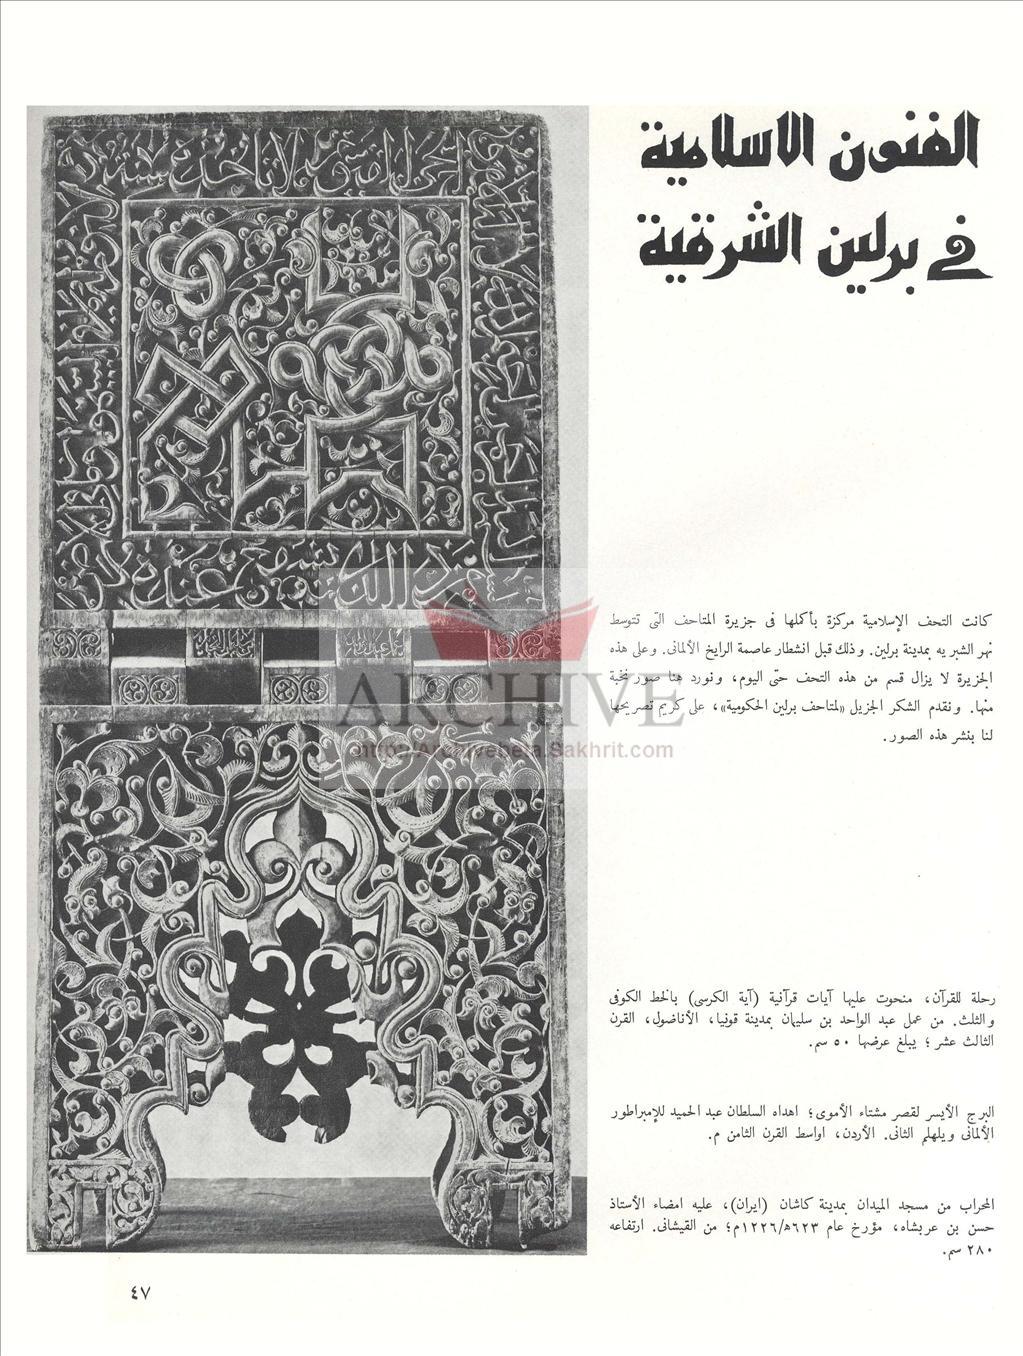 الفنون الاسلامية
في برلين الشرقية
كانت التحف الإسلامية مركزة بأكملها فى جزيرة المتاحف التى تتوسط
نهر الشبريه بمدينة برلين. وذلك قبل انشطار عاصمة الرايخ الألمانى. وعلى هذه
الجزيرة لا يزال قسم من هذه التحف حتى اليوم، ونورد هنا صور نخبة
منها. ونقدم الشكر الجزيل «لمتاحف برلين الحكومية»، على كريم تصريحها
لنا بنشر هذه الصور.
ARCHIVE
http://Archivebeta.Sakhrit.com
رحلة للقرآن، منحوت عليها آيات قرآنية (آية الكرسى) بالخط الكوفى
والثلث. من عمل عبد الواحد بن سليمان بمدينة قونيا، الأناضول، القرن
الثالث عشر؛ يبلغ عرضها ٥٠ سم.
البرج الأيسر لقصر مشتاء الأموى؛ اهداه السلطان عبد الحميد للإمبراطور
الألمانى ويلهلم الثانى. الأردن، اواسط القرن الثامن م.
المحراب من مسجد الميدان بمدينة كاشان (ايران)، عليه امضاء الأستاذ
حسن بن عربشاه، مؤرخ عام ٦٢٣ه/١٢٢٦م؛ من القيشانى. ارتفاعه
٢٨٠ سم.
٤٧